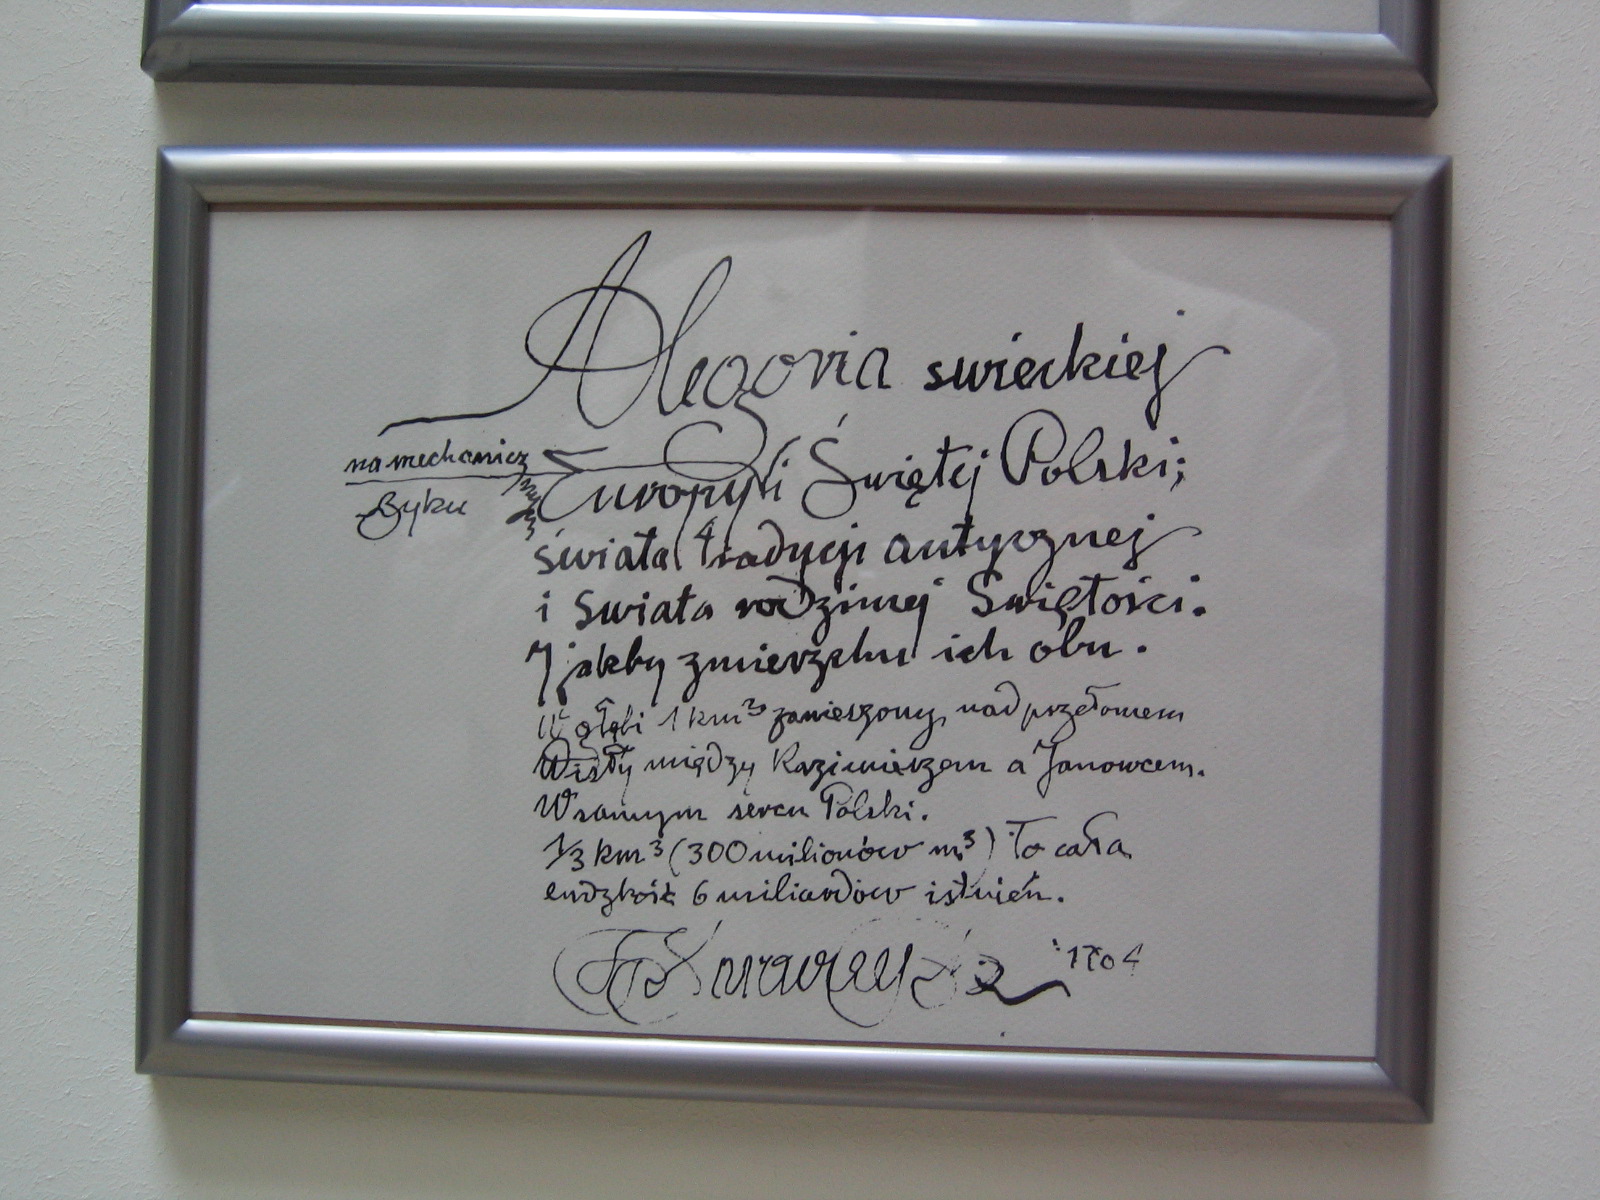 Alegoria swieckiej
na mechanicz
Byku
Europy i Świętej Polski;
świata tradycji antycznej
i Swiata rodzimej Swiętości.
I jakby zmierzchu ich obu.
W głębi 1 km³ zawieszony nad przełomem
Wisły między Kazimierzem a Janowcem.
W samym sercu Polski.
1/3 km³ (300 milionów m³) To cała
ludzkość 6 miliardów istnień.